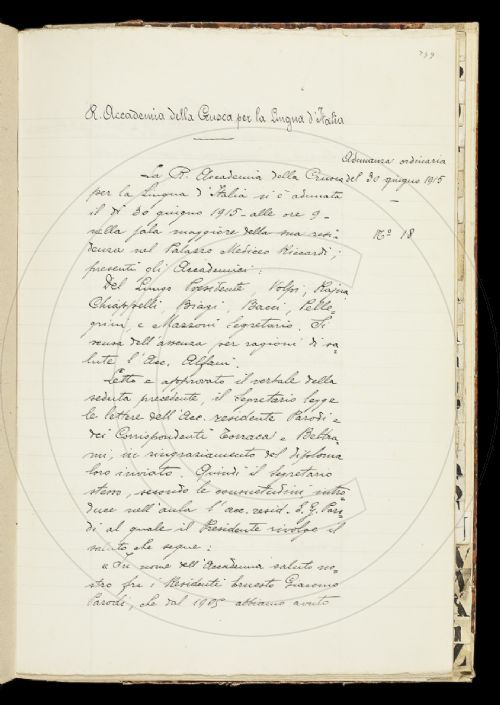 799
R. Accademia della Crusca per la Lingua d'Italia
Adunanza ordinaria
del 30 giugno 1915
N.º 18
La R. Accademia della Crusca
per la Lingua d'Italia si è adunata
il dì 30 giugno 1915 - alle ore 9 -
nella sala maggiore della sua resi-
denza nel Palazzo Mediceo Riccardi;
presenti gli Accademici:
Del Lungo Presidente, Volpi, Rajna,
Chiappelli, Biagi, Bacci, Pelle-
grini, e Mazzoni Segretario. Si
scusa dell'assenza per ragioni di sa-
lute l'Acc. Alfani.
Letto e approvato il verbale della
seduta precedente, il Segretario legge
le lettere dell'Acc. residente Parodi e
dei Corrispondenti Torraca e Beltra-
mi, in ringraziamento del diploma
loro inviato. Quindi il Segretario
stesso, secondo le consuetudini, intro-
duce nell'aula l'acc. resid. E. G. Paro-
di al quale il Presidente rivolge il
saluto che segue:
« In nome dell'Accademia saluto no-
stro fra i Residenti Ernesto Giacomo
Parodi, che dal 1905 abbiamo avuto